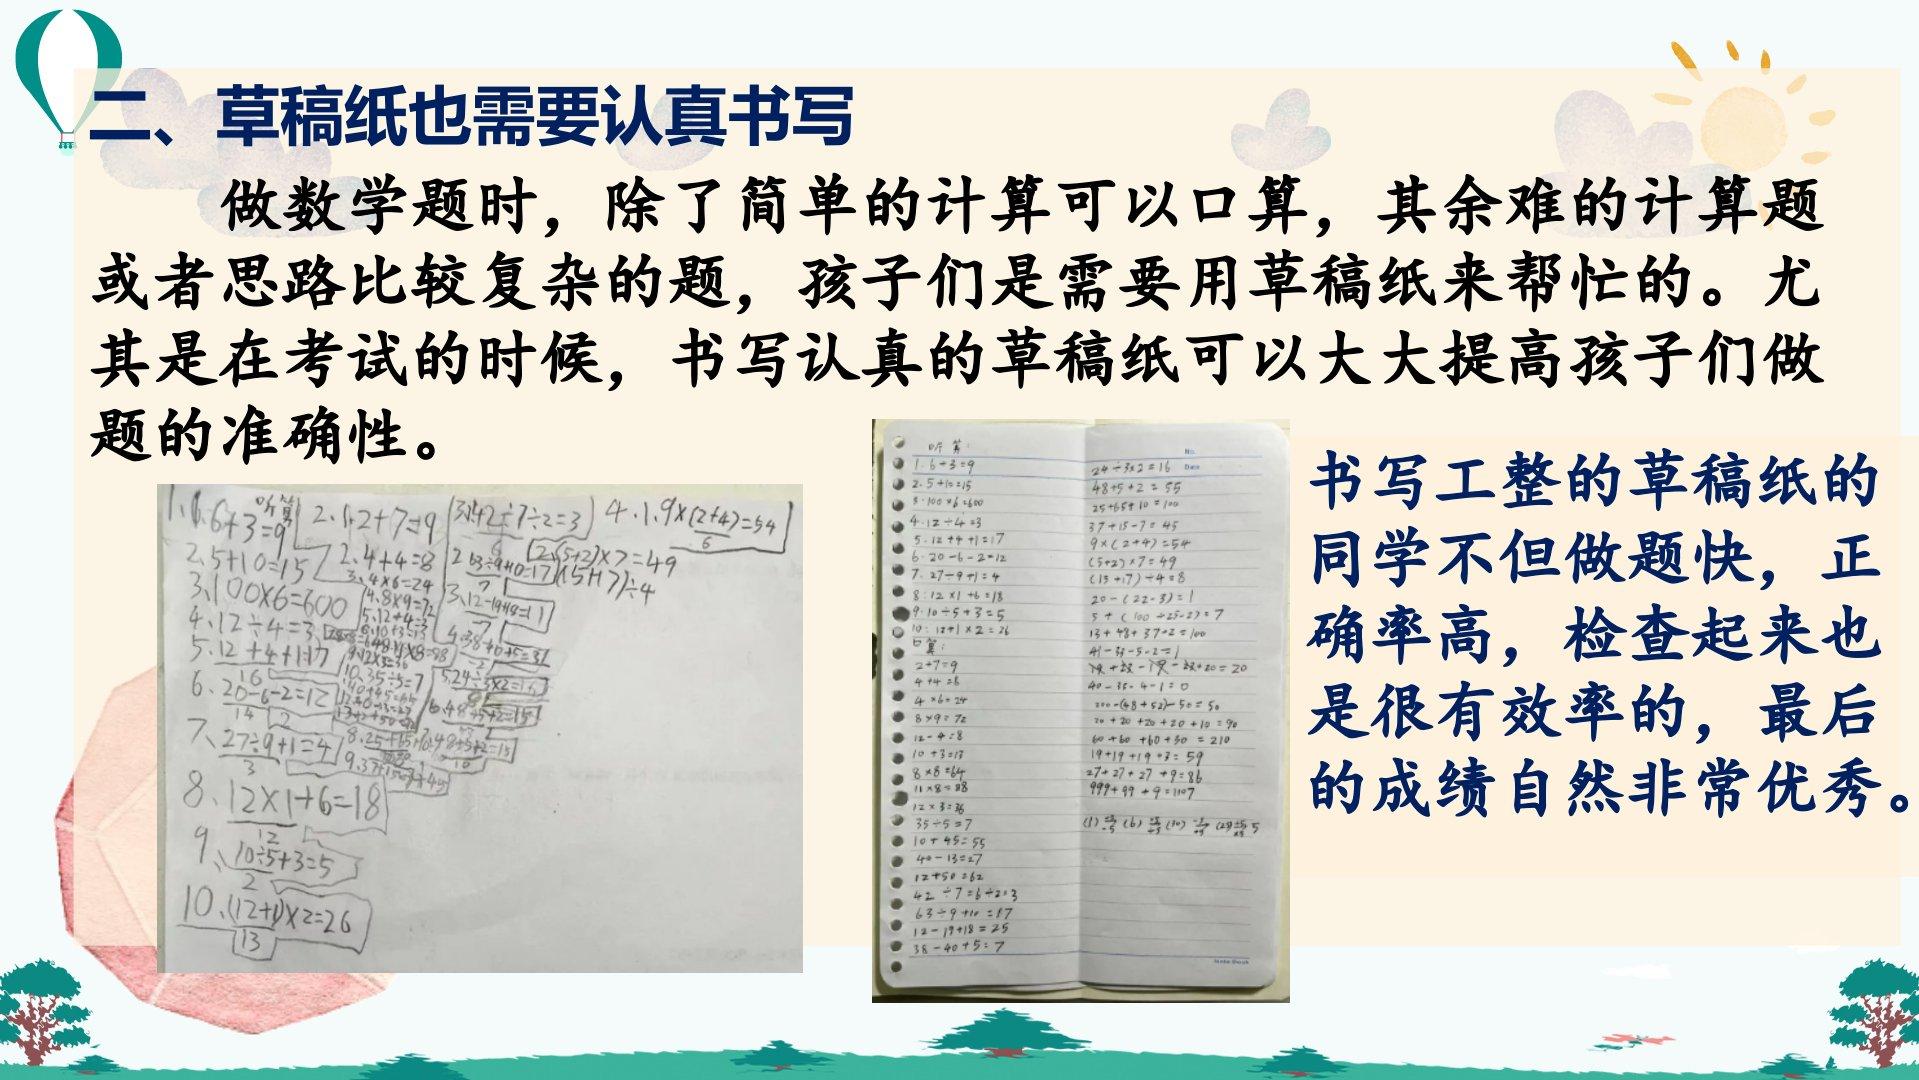 二、草稿纸也需要认真书写
做数学题时，除了简单的计算可以口算，其余难的计算题
或者思路比较复杂的题，孩子们是需要用草稿纸来帮忙的。尤
其是在考试的时候，书写认真的草稿纸可以大大提高孩子们做
题的准确性。
书写工整的草稿纸的
同学不但做题快，正
确率高，检查起来也
是很有效率的，最后
的成绩自然非常优秀。
听算
1、6+3=9
2、5+10=15
3、100×6=600
4、12÷4=3
5、12+4+1=17
16
6、20-6-2=12
14
7、27÷9+1=4
3
8、12×1+6=18
12
9、10÷5+3=5
2
10、(12+1)×2=26
13
2.1、2+7=9
2、4+4=8
3、4×6=24
4.8×9=72
3、42÷7÷2=3
6
4.1、9×(2+4)=54
6
2、(5+2)×7=49
(15+17)÷4
听算：
1.6+3=9
2.5+10=15
3.100×6=600
4.12÷4=3
5.12+4+1=17
6.20-6-2=12
7.27÷9+1=4
8.12×1+6=18
9.10÷5+3=5
10.12+1×2=26
口算：
2+7=9
4+4=8
4×6=24
8×9=72
12-4=8
10+3=13
8×8=64
11×8=88
12×3=36
35÷5=7
10+45=55
40-13=27
12+50=62
42÷7=6÷2=3
63÷9+10=17
12-19+18=25
38-40+5=7
No.
Date
24÷3×2=16
48+5+2=55
25+65+10=100
37+15-7=45
9×(2+4)=54
(5+2)×7=49
(15+17)÷4=8
20-(22-3)=1
13+48+37+2=100
41-33-5-2=1
40-35-4-1=0
200-(48+52)-50=50
20+20+20+20+10=90
60+60+60+30=210
19+19+19+3=59
27+27+27+9=86
999+99+9=1107